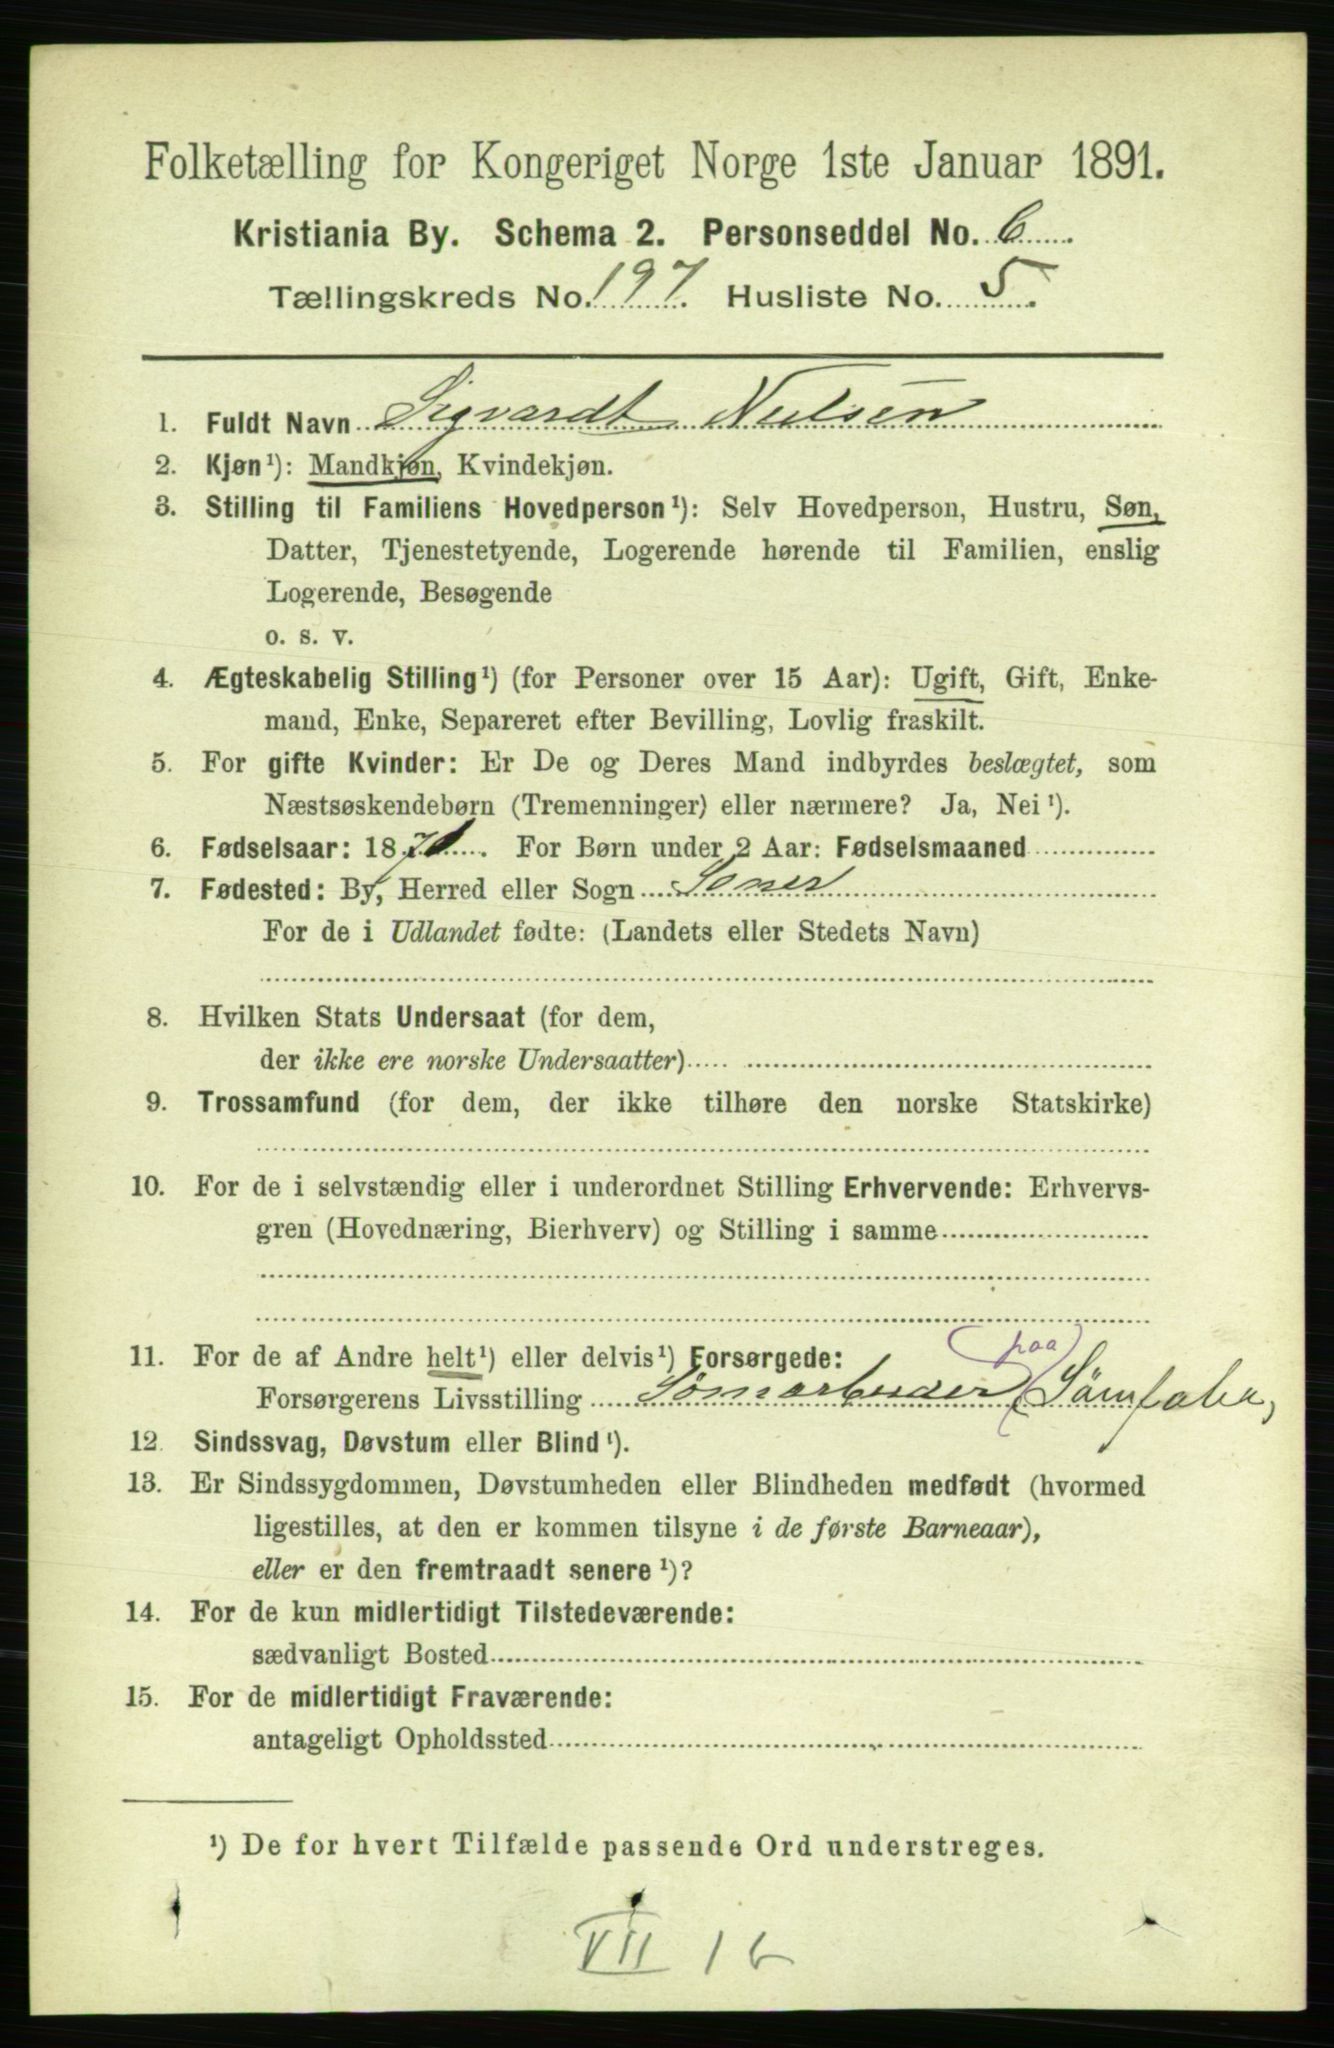 Folketælling for Kongeriget Norge 1ste Januar 1891.
Kristiania By. Schema 2. Personseddel No. 6
Tællingskreds No. 197. Husliste No. 5.
1. Fuldt Navn Sigvardt Nielsen
2. Kjøn¹): Mandkjøn, Kvindekjøn.
3. Stilling til Familiens Hovedperson¹): Selv Hovedperson, Hustru, Søn,
Datter, Tjenestetyende, Logerende hørende til Familien, enslig
Logerende, Besøgende
o. s. v.
4. Ægteskabelig Stilling¹) (for Personer over 15 Aar): Ugift, Gift, Enke-
mand, Enke, Separeret efter Bevilling, Lovlig fraskilt.
5. For gifte Kvinder: Er De og Deres Mand indbyrdes beslægtet, som
Næstsøskendebørn (Tremenninger) eller nærmere? Ja, Nei¹).
6. Fødselsaar: 187 . For Børn under 2 Aar: Fødselsmaaned
7. Fødested: By, Herred eller Sogn
For de i Udlandet fødte: (Landets eller Stedets Navn)
8. Hvilken Stats Undersaat (for dem,
der ikke ere norske Undersaatter)
9. Trossamfund (for dem, der ikke tilhøre den norske Statskirke)
10. For de i selvstændig eller i underordnet Stilling Erhvervende: Erhvervs-
gren (Hovednæring, Bierhverv) og Stilling i samme
11. For de af Andre helt¹) eller delvis¹) Forsørgede:
paa
Forsørgerens Livsstilling Sømarbeider Sømfabr,
12. Sindssvag, Døvstum eller Blind¹).
13. Er Sindssygdommen, Døvstumheden eller Blindheden medfødt (hvormed
ligestilles, at den er kommen tilsyne i de første Barneaar),
eller er den fremtraadt senere¹)?
14. For de kun midlertidigt Tilstedeværende:
sædvanligt Bosted
15. For de midlertidigt Fraværende:
antageligt Opholdssted
¹) De for hvert Tilfælde passende Ord understreges.
VII 16